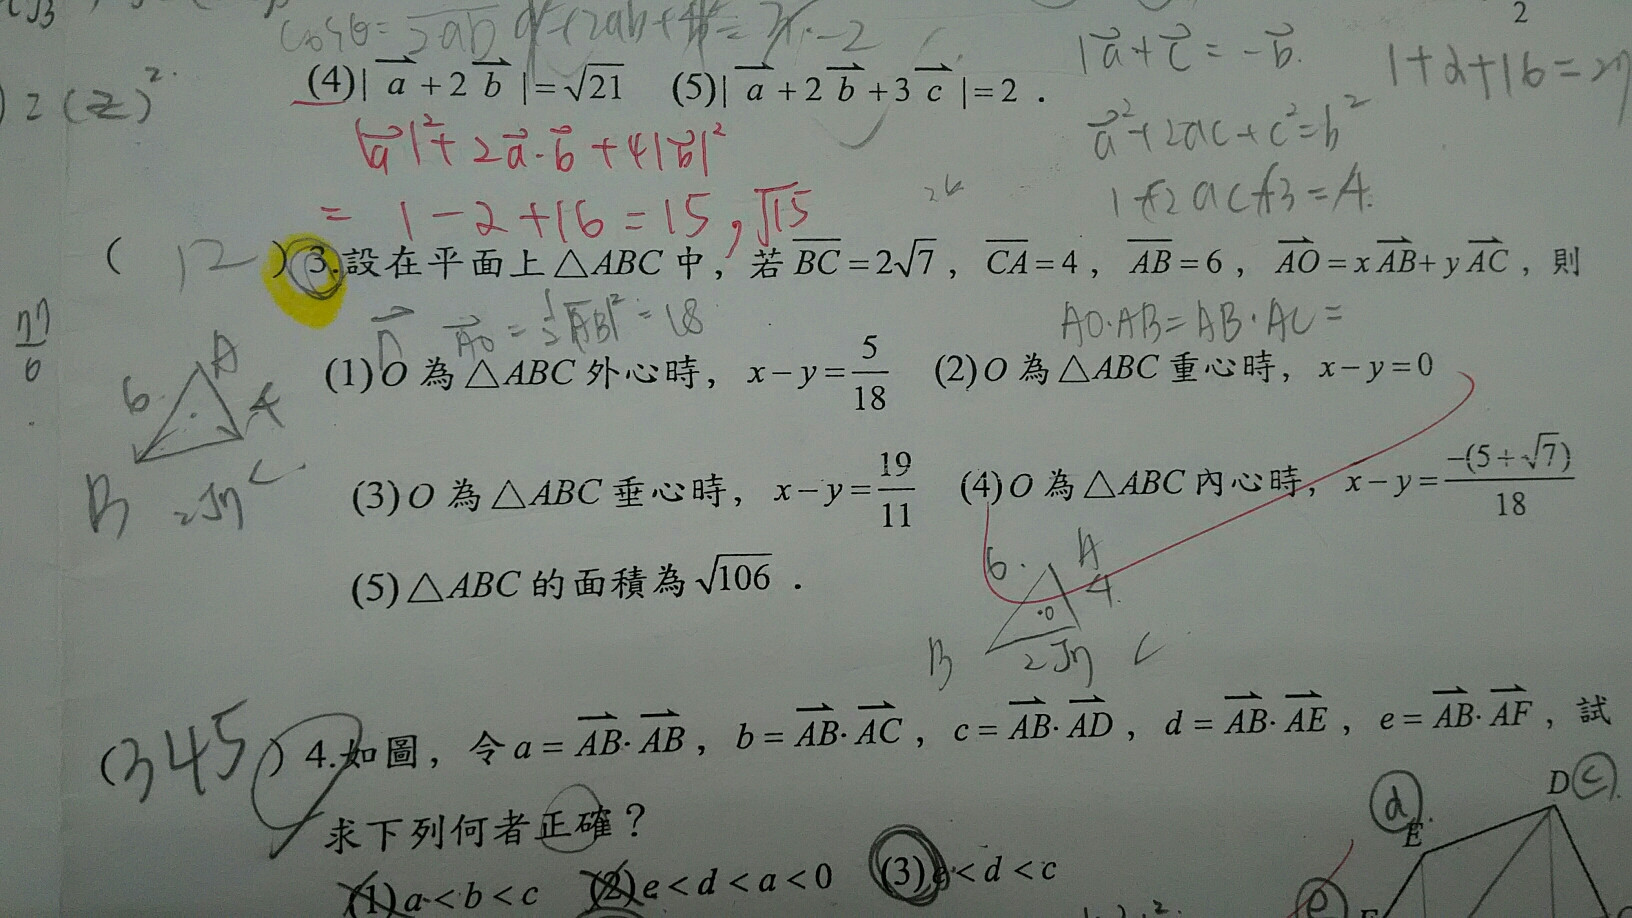 cosθ=
2
(4)| a + 2 b |=√21 (5)| a + 2 b + 3 c |= 2 .
|a + c = -b.
1+2+16=27
2(2)².
|a|² + 2a·b + 4|b|²
a²+2ac+c²=b²
= 1 - 2 + 16 = 15, √15
( 12 ) 3.設在平面上△ABC 中，若 BC = 2√7 ， CA = 4 ， AB = 6 ， AO = x AB + y AC ，則
AO = 1/2|AB|² = 18
AO·AB = AB·AC =
(1) O 為 △ABC 外心時， x − y = 5/18 (2) O 為 △ABC 重心時， x − y = 0
A
6 4
B 2√7 C
(3) O 為 △ABC 垂心時， x − y = 19/11 (4) O 為 △ABC 內心時， x − y = −(5+√7)/18
(5) △ABC 的面積為 √106 .
6 A
·O 4
B 2√7 C
(345) 4.如圖，令 a = AB·AB ， b = AB·AC ， c = AB·AD ， d = AB·AE ， e = AB·AF ，試
求下列何者正確？
D c
d
E
(1) a < b < c (2) e < d < a < 0 (3) e < d < c
e